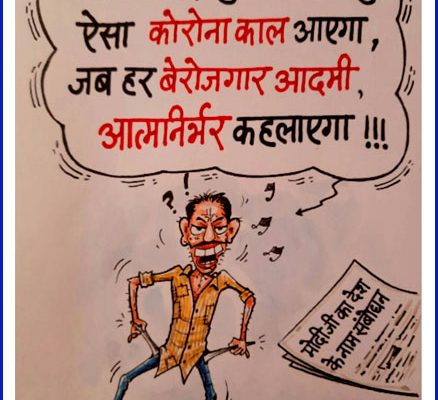 ऐसा कोरोना काल आएगा,
जब हर बेरोजगार आदमी,
आत्मनिर्भर कहलाएगा !!!
? !
मोदीजी का देश
के नाम संबोधन